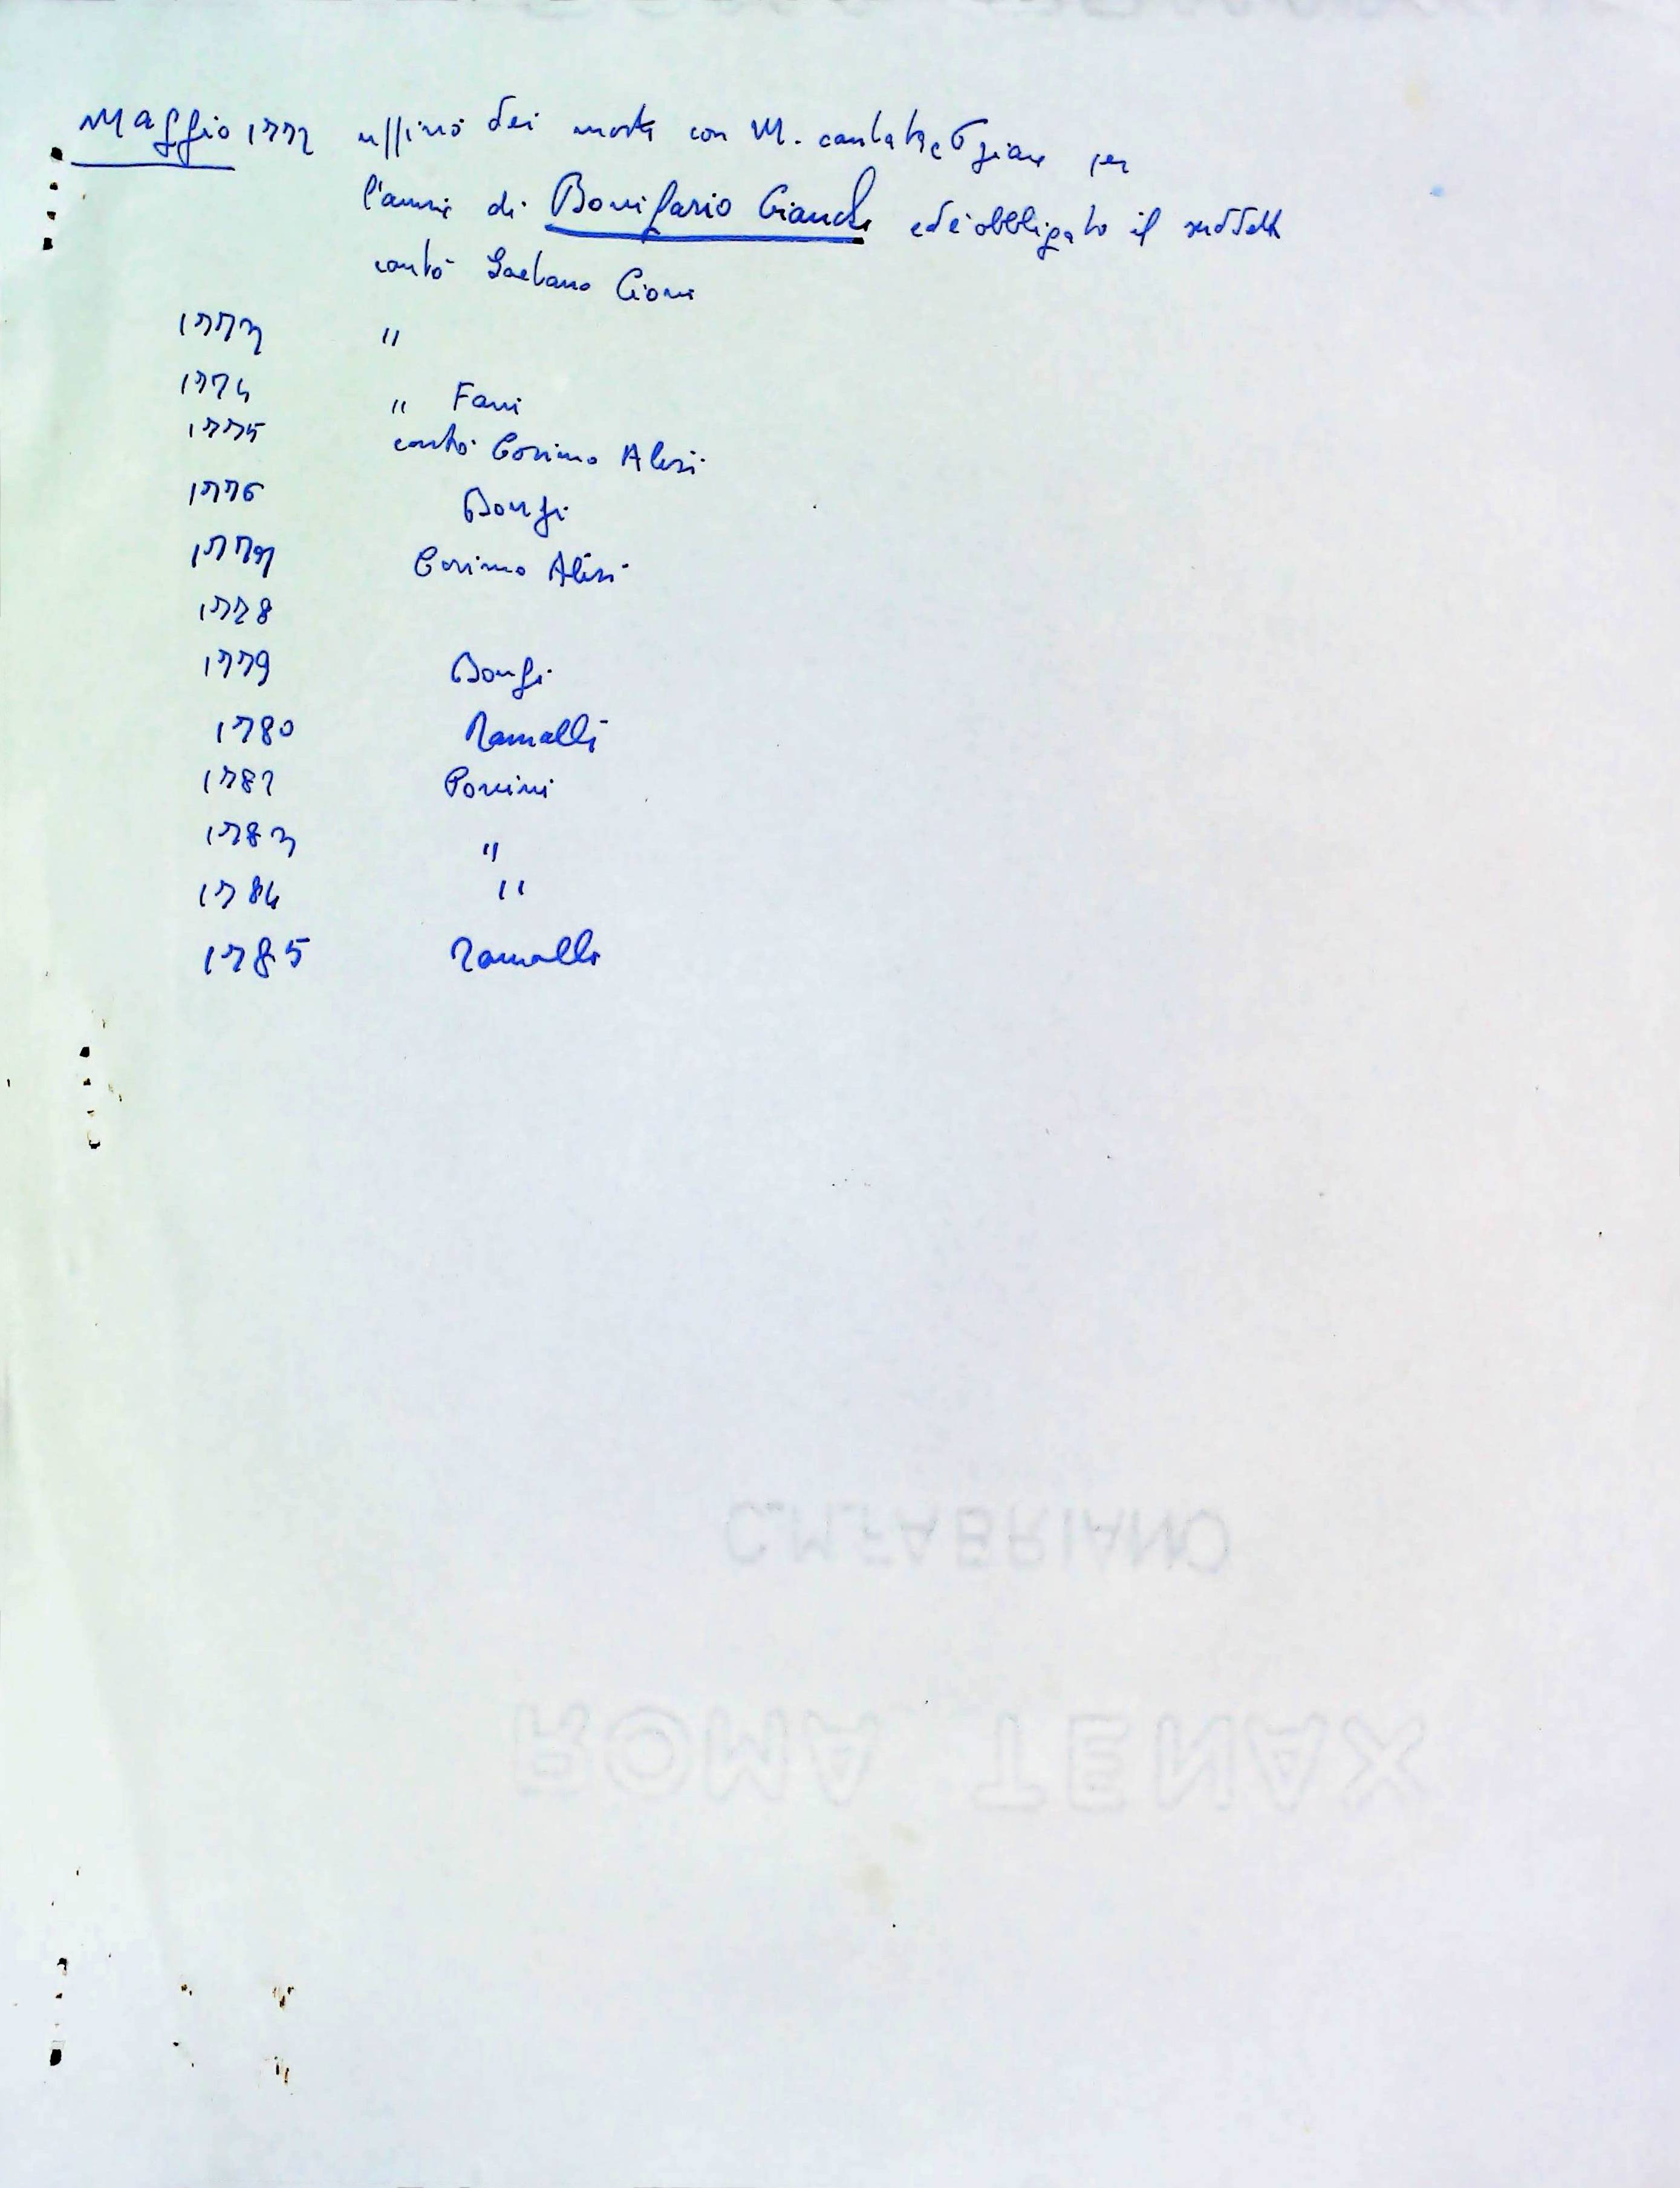 Maggio 1772 uffizio dei morti con M. cantata e 6 piane per
l'anima di Bonifazio Gianchi ed è obbligato il suddetto
cantò Gaetano Cioni
1773 "
1774 " Fani
1775 cantò Cosimo Alesi
1776 Bongi
1777 Cosimo Alesi
1778
1779 Bongi
1780 Ramalli
1782 Ponzini
1783 "
1784 "
1785 Ramalli
C.M.FABRIANO
ROMA TENAX